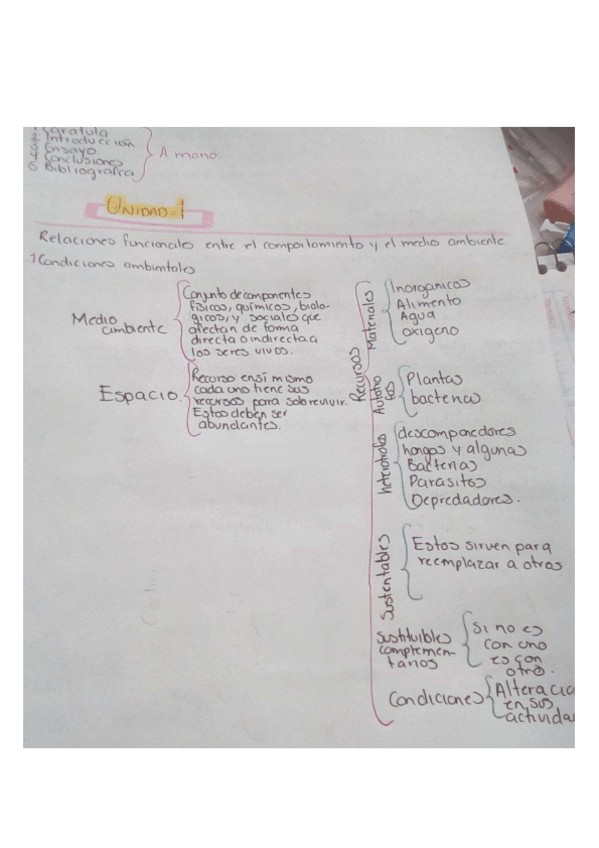 Introducción
Ensayo.
Conclusiones
Bibliografía
A mano.
UNIDAD-1
Relaciones funcionales entre el comportamiento y el medio ambiente
1 Condiciones ambientales
Medio
ambiente
Conjunto de componentes
físicos, químicos, biolo-
gicos, y sociales que
afectan de forma
directa o indirecta a
los seres vivos.
Espacio.
Recurso en sí mismo
cada uno tiene sus
recursos para sobrevivir.
Estos deben ser
abundantes.
Recursos
Materiales
Inorganicos
Alimento
Agua
oxigeno
Autotro
fos
Plantas
bacterias
heterotrofos
descomponedores
hongos y algunas
Bacterias
Parasitos
Depredadores.
Sustentables
Estos sirven para
reemplazar a otros
Sustituibles
complemen-
tarios
Si no es
con uno
es con
otro.
Condiciones
Alteracio
en sus
activida